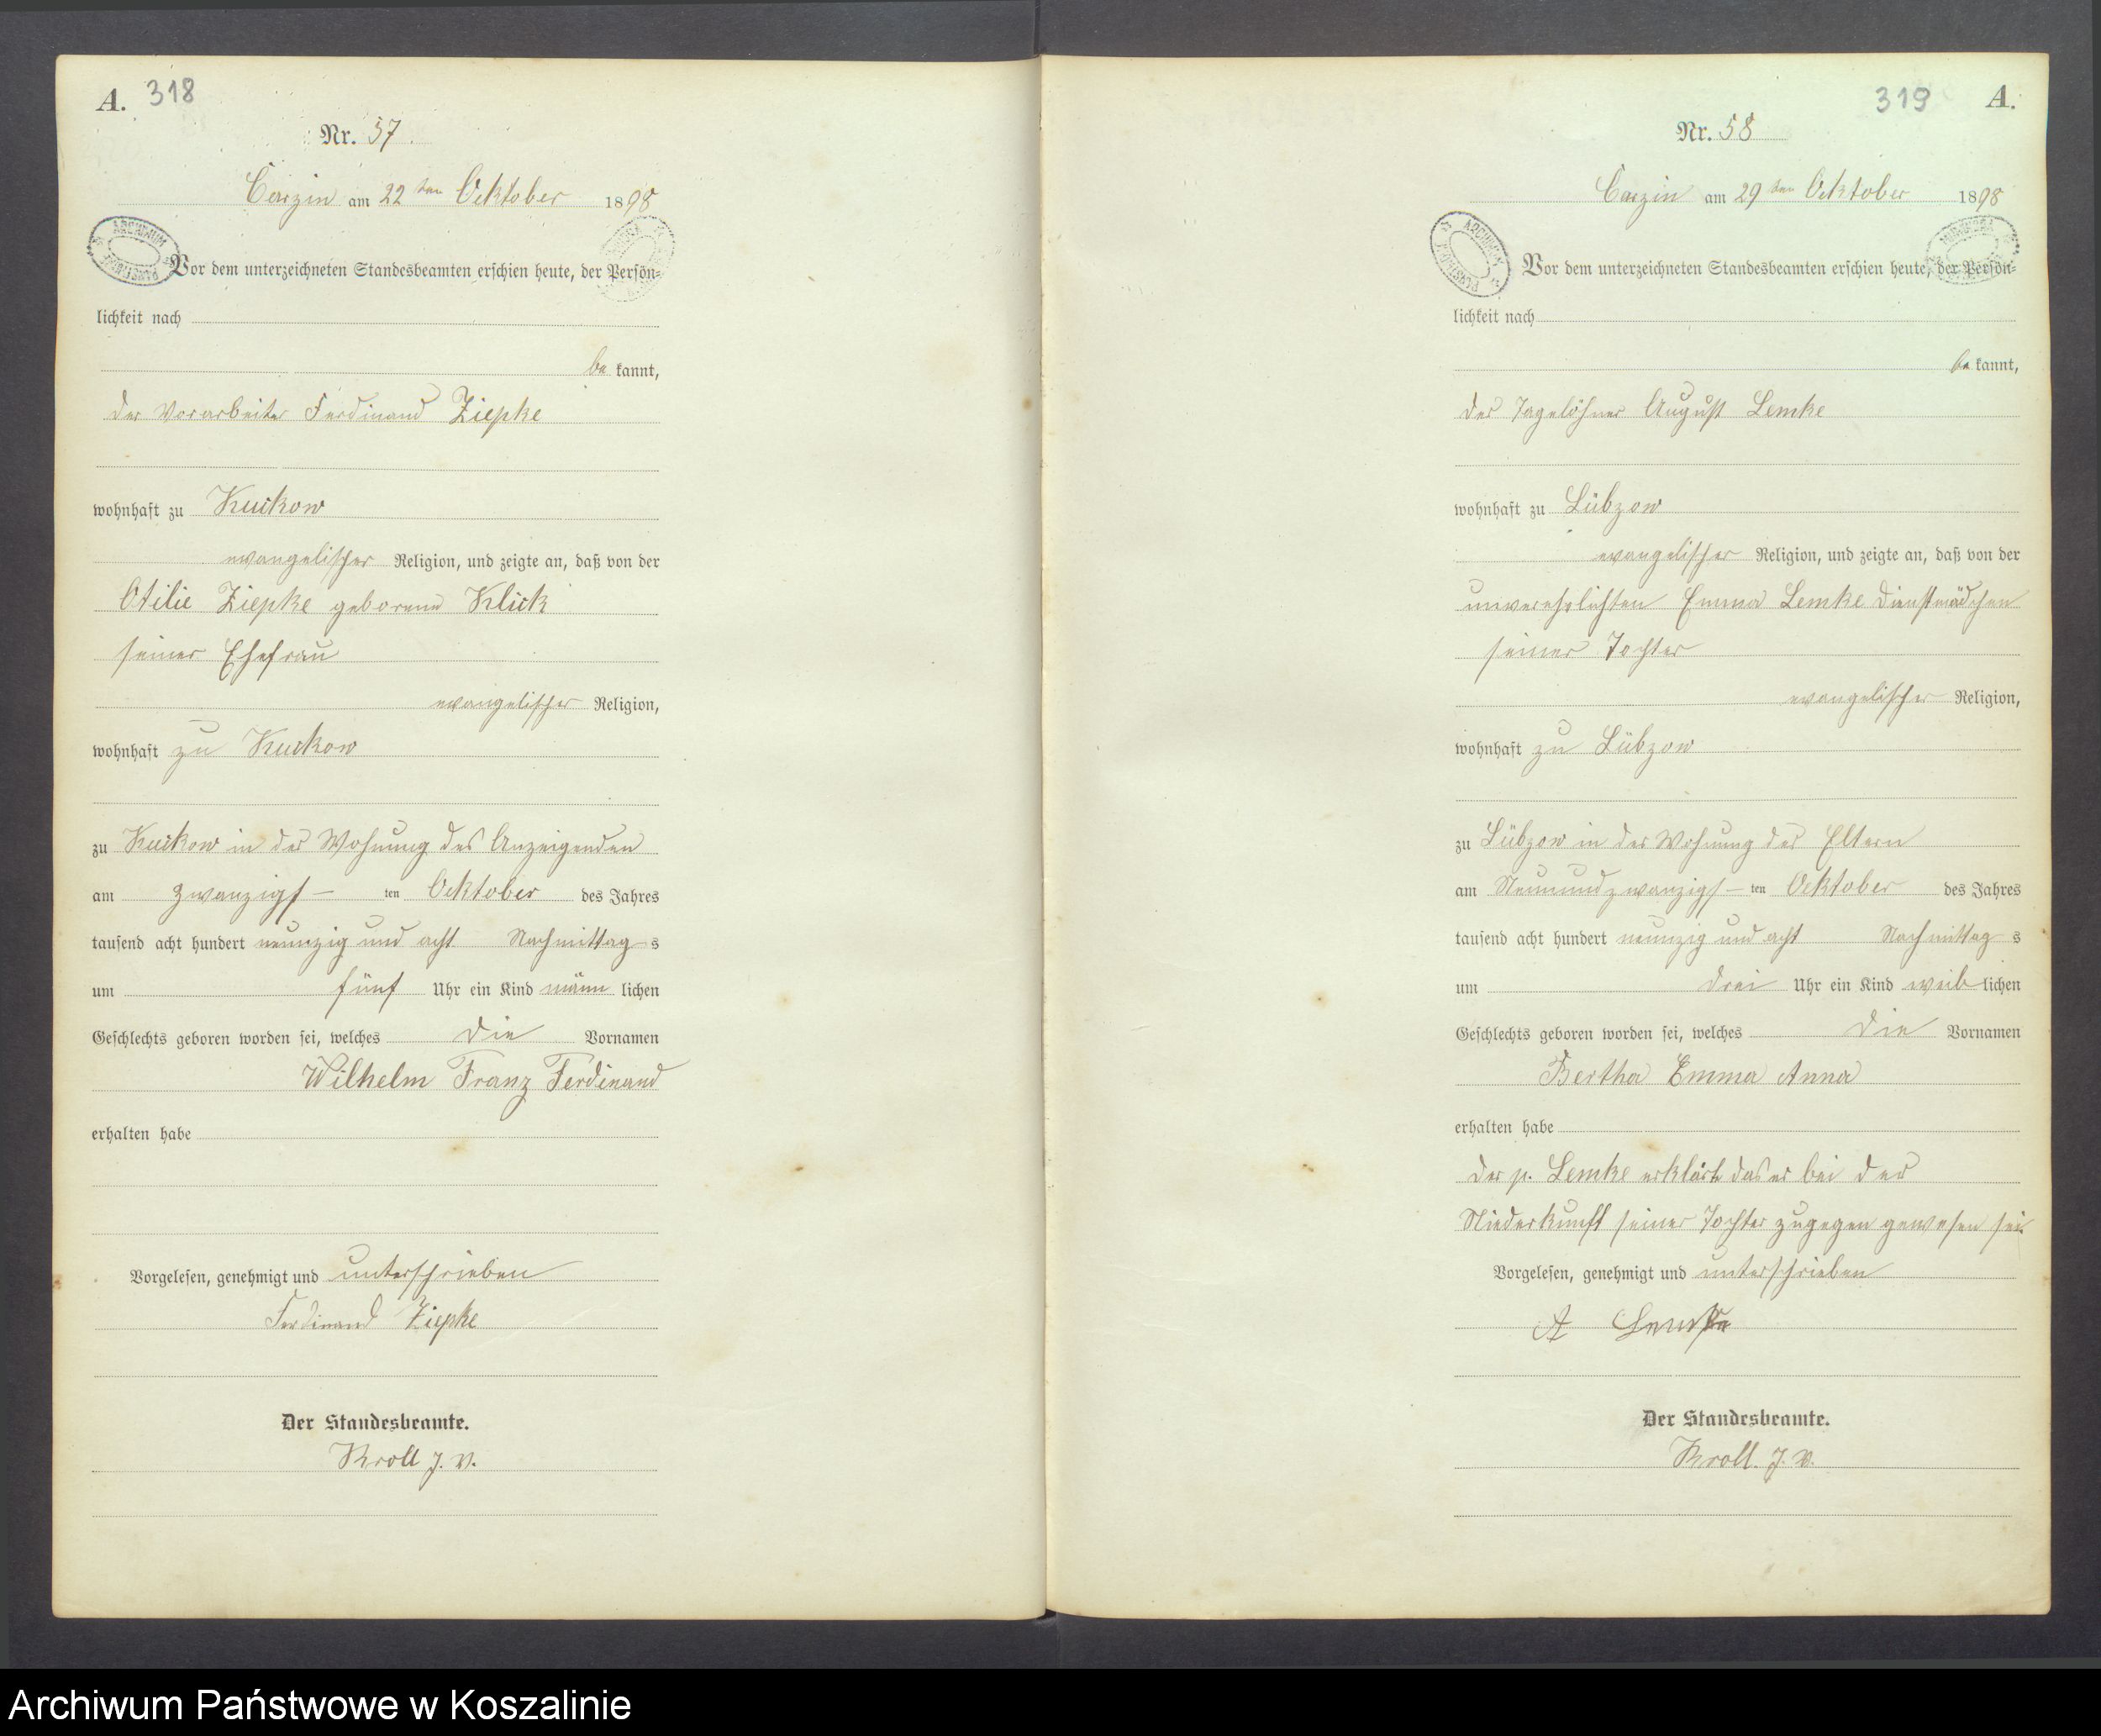 A. 318
Nr. 57.
Carzin am 22ten Oktober 1898
Vor dem unterzeichneten Standesbeamten erschien heute, der Persön-
lichkeit nach
be kannt,
der Vorarbeiter Ferdinand Ziepke
wohnhaft zu Kuckow
evangelischer Religion, und zeigte an, daß von der
Otilie Ziepke geborene Klick
seiner Ehefrau
evangelischer Religion,
wohnhaft zu Kuckow
zu Kuckow in der Wohnung des Anzeigenden
am zwanzigs- ten Oktober des Jahres
tausend acht hundert neunzig und acht Nachmittag s
um fünf Uhr ein Kind männ lichen
Geschlechts geboren worden sei, welches die Vornamen
Wilhelm Franz Ferdinand
erhalten habe
Vorgelesen, genehmigt und unterschrieben
Ferdinand Ziepke
Der Standesbeamte.
Kroll J. V.
319 A.
Nr. 58
Carzin am 29ten Oktober 1898
Vor dem unterzeichneten Standesbeamten erschien heute, der Persön-
lichkeit nach
be kannt,
der Tagelöhner August Lemke
wohnhaft zu Lübzow
evangelischer Religion, und zeigte an, daß von der
unverehelichten Emma Lemke Dienstmädchen
seiner Tochter
evangelischer Religion,
wohnhaft zu Lübzow
zu Lübzow in der Wohnung der Eltern
am Neunundzwanzigs- ten Oktober des Jahres
tausend acht hundert neunzig und acht Nachmittag s
um drei Uhr ein Kind weib lichen
Geschlechts geboren worden sei, welches die Vornamen
Bertha Emma Anna
erhalten habe
Der p. Lemke erklärte das er bei der
Niederkunft seiner Tochter zugegen gewesen sei.
Vorgelesen, genehmigt und unterschrieben
A Lemke
Der Standesbeamte.
Kroll. J. V.
Archiwum Państwowe w Koszalinie